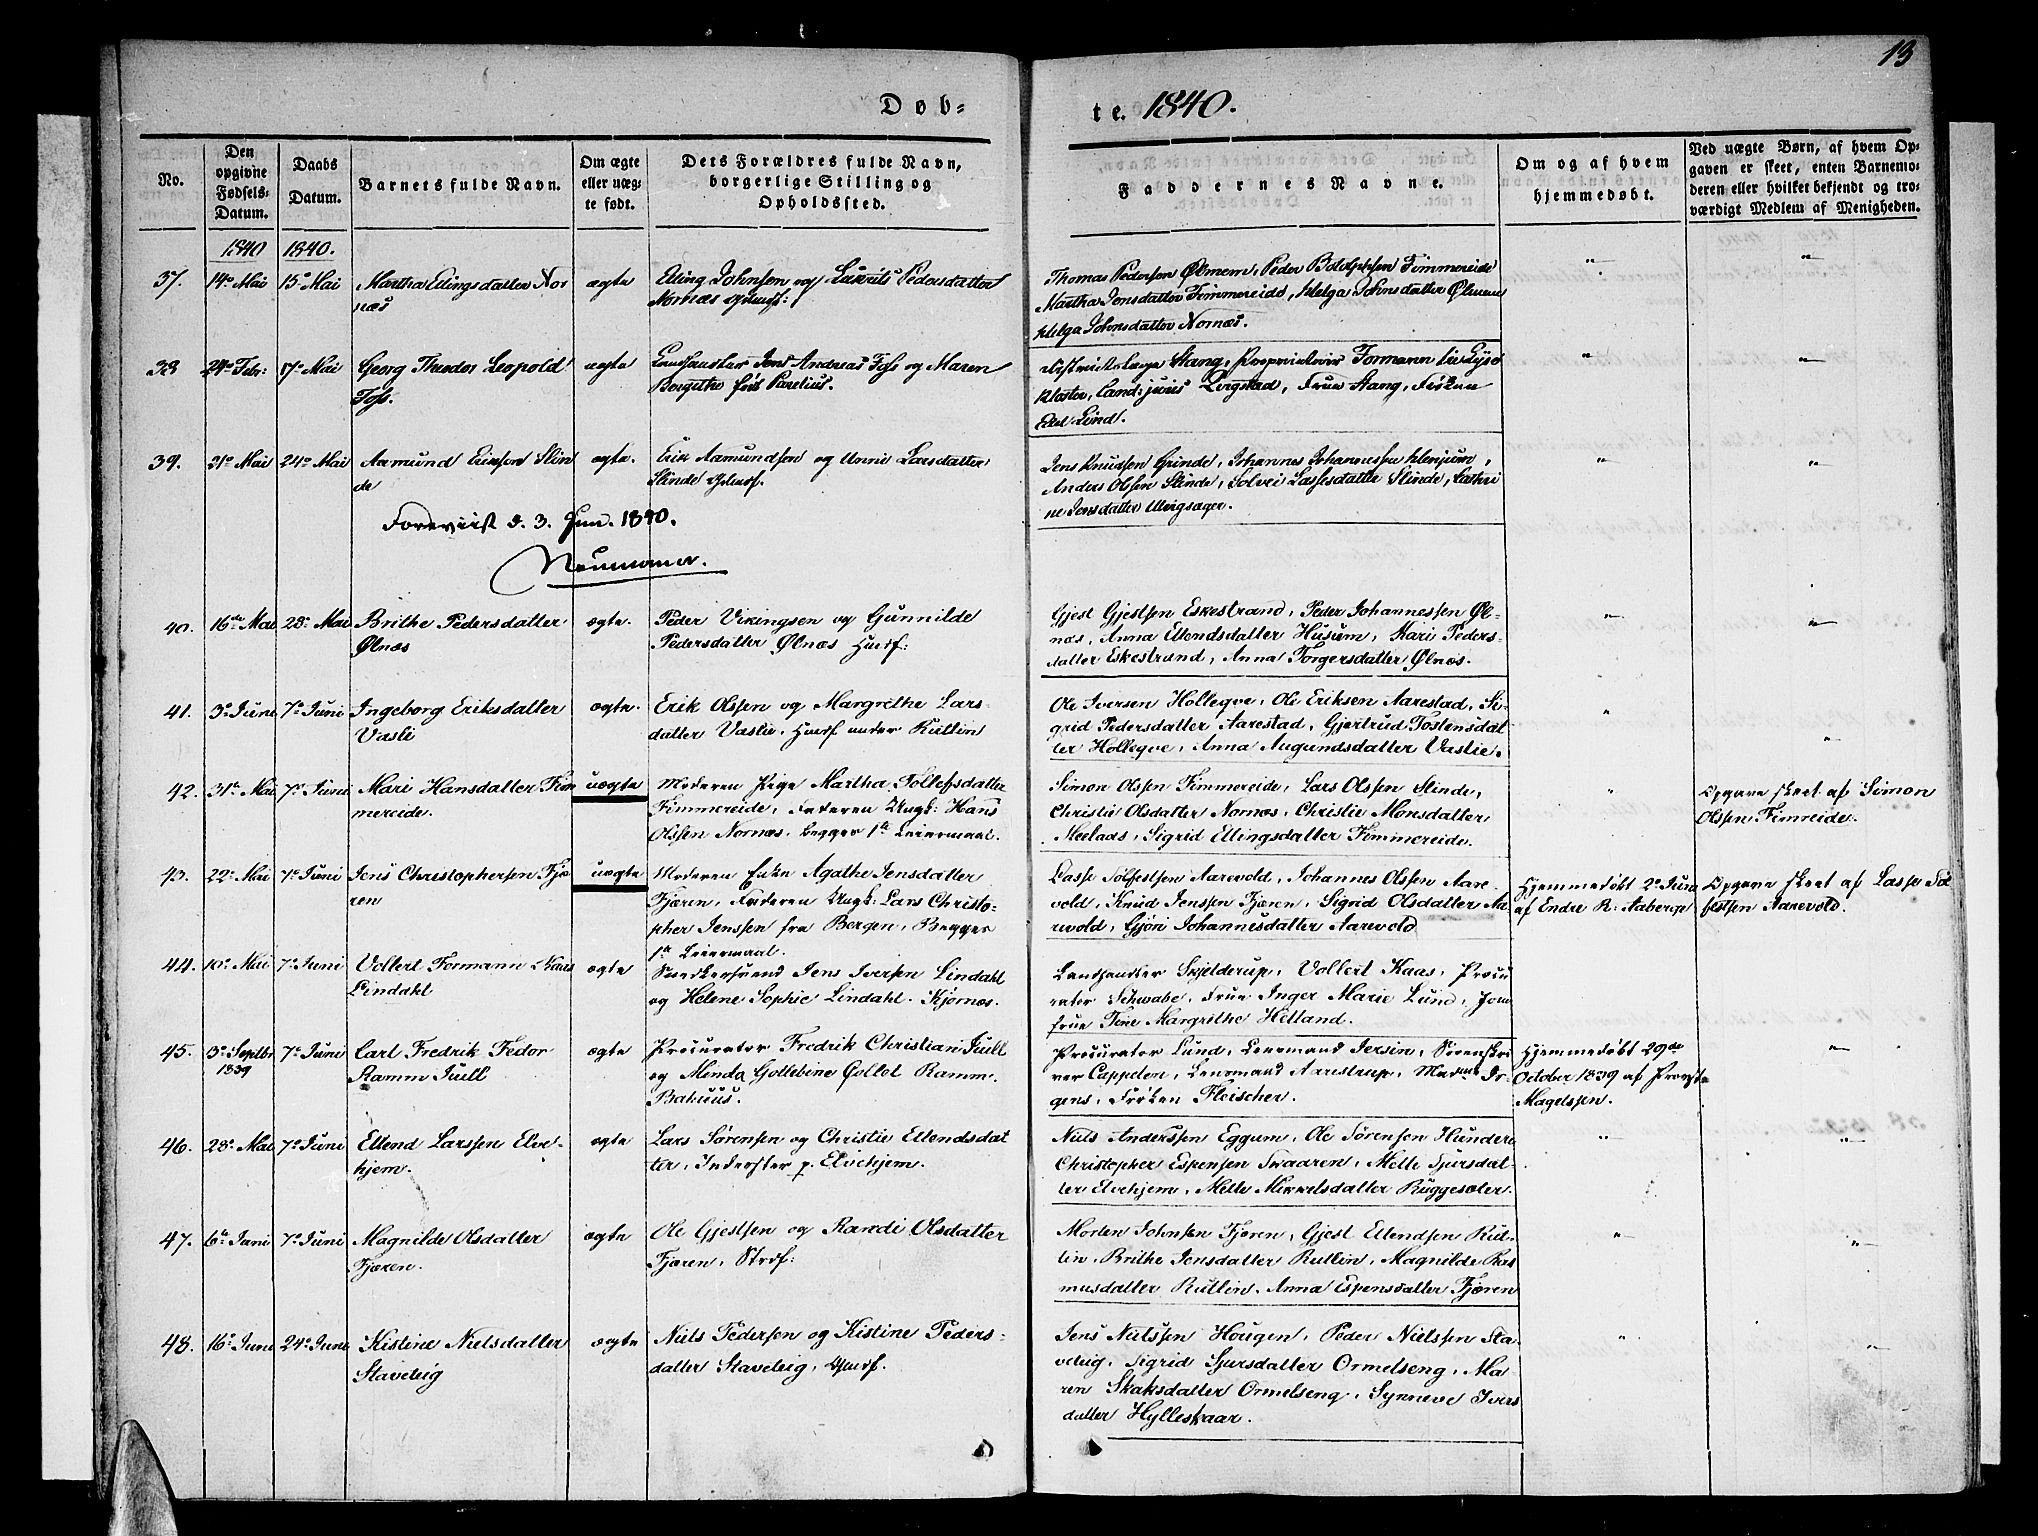 13
Døb-
te. 1840.
No.
Den opgivne Fødsels-Datum.
Daabs Datum.
Barnets fulde Navn.
Om ægte eller uæg-te født.
Dets Forældres fulde Navn, borgerlige Stilling og Opholdssted.
Faddernes Navne.
Om og af hvem hjemmedøbt.
Ved uægte Børn, af hvem Op-gaven er skeet, enten Barnemo-deren eller hvilket bekjendt og tro-værdigt Medlem af Menigheden.
1840 1840.
37. 14de Mai 15de Mai Martha Ellingsdatter Nor
næs
ægte
Elling Johnsen og Pedersdatter
Nornæs
Thomas Pedersen Ølmem, Peder Botolphsen Fimmereide
Martha Jensdatter Fimmereide, Helga Johnsdatter Ølmem
Helga Johnsdatter Nornæs.
38 24de Febr: 17de Mai Georg Theodor Leopold
Foss.
ægte
Jens Andreas Foss og Maren
Bergithe
Districtslæge Stang, Proprietair Formann til Lyse
Kloster, Cand: juris Qvigstad, Frue Stang, Frøken
Lind.
39. 21de Mai 24de Mai Aamund Eriksen Slin
de
ægte.
Erik Aamundsen og Unni Larsdatter
Slinde
Jens Knudsen Grinde, Johannes Johannessen Henjum,
Anders Olsen Slinde, Solvei Lassesdatter Slinde, Cathri
ne Jensdatter
Foreviist d. 3. Jun. 1840.
Neumann.
40. 16de Mai 28de Mai Brithe Pedersdatter
Ølnæs
ægte.
Peder Vikingsen og Gunnilde
Pedersdatter Ølnæs Husf:
Gjest Gjestsen Eskestrand, Peder Johannessen Øl-
næs, Anna Ellendsdatter Husum, Mari Peders-
datter Eskestrand, Anna Torgersdatter Ølnæs.
41. 3de Juni 7de Juni Ingeborg Eriksdatter
Vasli
ægte.
Erik Olssen og Margrethe Lars-
datter Vaslie. Husf under Rutlin
Ole Iversen Hollegve, Ole Eriksen Aarestad, Si-
grid Pedersdatter Aarestad, Gjertrud Tostensdat
ter Hollegve, Anna Augundsdatter Vaslie.
42. 31te Mai 7de Juni Mari Hansdatter Fim
mereide.
uægte
Moderen Pige Martha Tollefsdatter
Fimmereide, Faderen Ungk: Hans
Olssen Nornæs. begges 1ste Leiermaal.
Simon Olssen Fimmereide, Lars Olssen Slinde,
Christi Olsdatter Nornæs, Christie Monsdatter
Meelaas, Sigrid Ellingsdatter Fimmereide.
Opgave skeet af Simon
Olssen Fimreide.
43. 22de Mai 7de Juni Jens Christophersen Fjæ
ren
uægte
Moderen Enke Agathe Jensdatter
Fjæren, Faderen Ungk: Lars Christo-
pher Jenssen fra Bergen, Begges
1ste Leiermaal.
Lasse Solfestsen Aarevold, Johannes Olssen Aare-
vold, Knud Jenssen Fjæren, Sigrid Olsdatter Aa-
revold, Gjøri Johannesdatter Aarevold
Hjemmedøbt 2de Juni
af Endre R. Aaberge
Opgave skeet af Lasse Sol
festsen Aarevold.
44. 10de Mai 7de Juni Vollert Formann Kaas
Lindahl
ægte
Snedkersvend Jens Iversen Lindahl
og Helene Sophie Lindahl. Kjørnæs.
Landhandler Skjelderup, Vollert Kaas, Procu
rator Schwabe, Frue Inger Marie Lund, Jom
frue Tine Margrethe Hetland.
45. 3de Septbr 1839 7de Juni Carl Fredrik Fedor
Ramm Juell
ægte
Procurator Fredrik Christian Juell
og Minda Gollebine Gollot Ramm.
Bakuus.
Procurator Lund, Lensmand Jersin, Sorenskri
ver Cappelen, Lensmand Aarestrup, Madme Ir-
gens, Frøken Fleischer.
Hjemmedøbt 29de
October 1839 af Provst
Magelssen.
46. 28de Mai 7de Juni Ellend Larssen Elve-
hjem.
ægte
Lars Sørensen og Christie Ellendsdat
ter, Inderster p. Elvehjem.
Niels Anderssen Eggum, Ole Sørensen Hundere
Christopher Espensen Svaaren, Mette Sjursdat-
ter Elvehjem, Mette Mikkelsdatter Ruggesæter.
47. 6te Juni 7de Juni Magnilde Olsdatter
Fjæren.
ægte
Ole Gjestsen og Randi Olsdatter
Fjæren, Strdf:
Morten Johnsen Fjæren, Gjest Ellendsen Rut-
lin, Brithe Jensdatter Rutlin, Magnilde Ras
musdatter Rutlin, Anna Espensdatter Fjæren
48. 16de Juni 24de Juni Kistine Nielsdatter
Staveleig
ægte
Niels Pedersen og Kistine Peders-
datter Staveleig, Husf.
Jens Nielssen Hougen, Peder Nielssen Sta-
veleig, Sigrid Sjursdatter Ormelseng, Ma-
ren Skaksdatter Ormelseng, Synneve Ivers
datter Hyllestvaar.